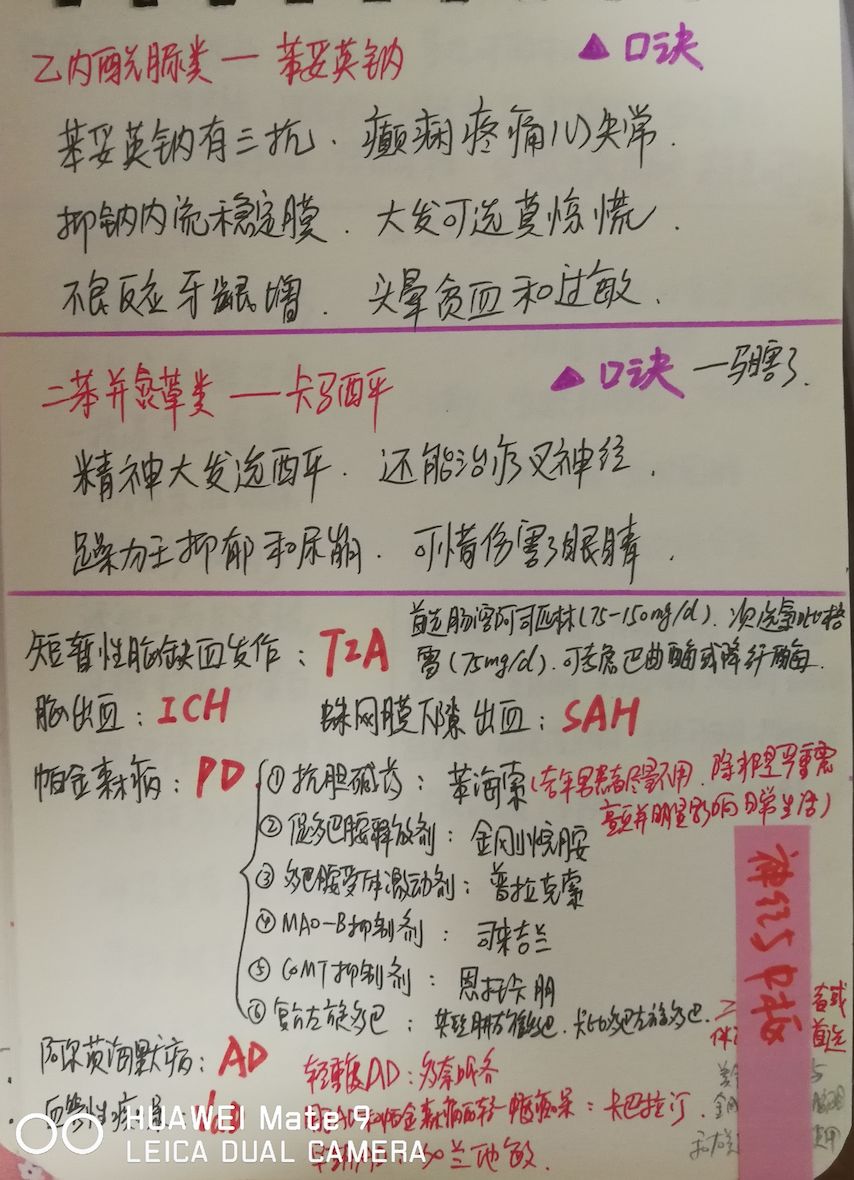 乙内酰脲类 — 苯妥英钠 ▲口诀
苯妥英钠有三抗. 癫痫疼痛心失常.
抑钠内流稳定膜. 大发可选莫惊慌.
不良反应牙龈增. 头晕贫血和过敏.
二苯并氮䓬类 — 卡马西平 ▲口诀 一马瞎了.
精神大发选西平. 还能治疗叉神经.
躁力王抑郁和尿崩. 可惜伤害了眼睛.
短暂性脑缺血发作: TIA
首选肠溶阿司匹林(75-150mg/d). 次选氯吡格
雷(75mg/d). 可考虑巴曲酶或降纤酶.
脑出血: ICH 蛛网膜下隙出血: SAH
帕金森病: PD
① 抗胆碱药: 苯海索(老年患者尽量不用. 除非是严重震
颤并明显影响日常生活)
② 促多巴胺释放剂: 金刚烷胺
③ 多巴胺受体激动剂: 普拉克索
④ MAO-B抑制剂: 司来吉兰
⑤ COMT抑制剂: 恩托卡朋
⑥ 复方左旋多巴: 左旋多巴.
神经与中枢
者或
首选
阿尔茨海默病: AD
轻重度AD: 多奈哌齐
血管性痴呆:
帕金森病 痴呆: 卡巴拉汀.
兰他敏.
HUAWEI Mate 9
LEICA DUAL CAMERA